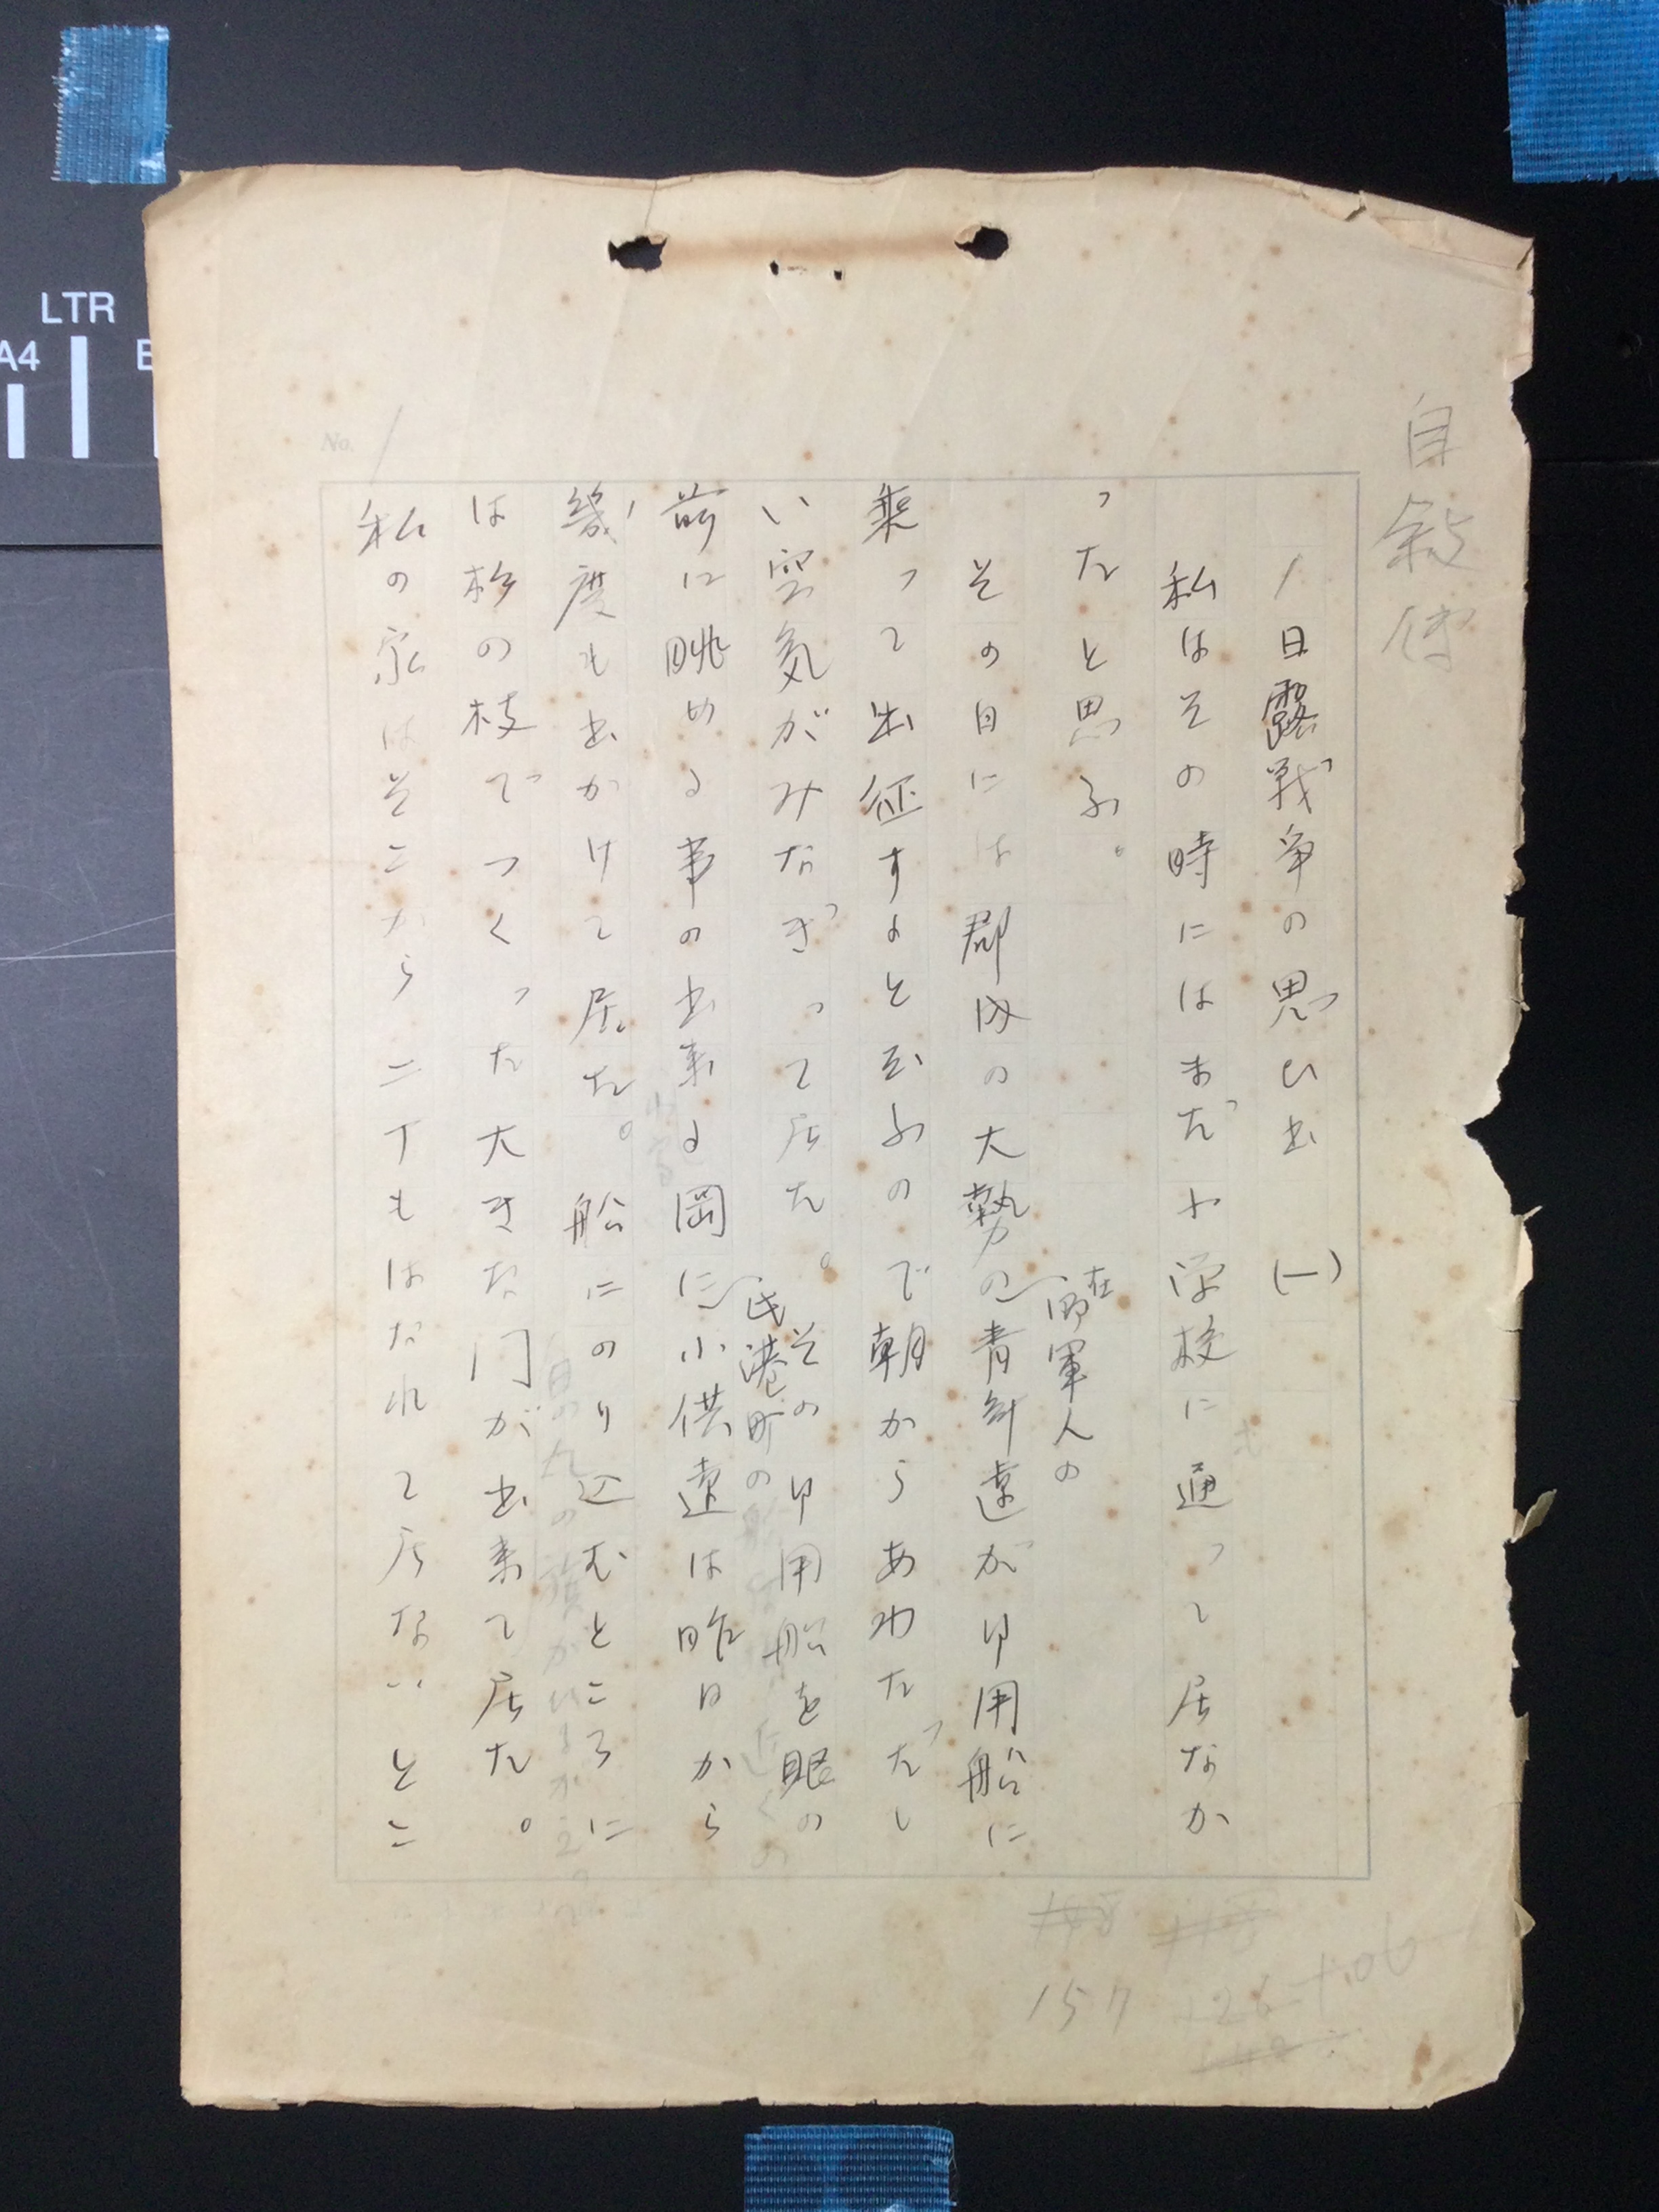 自叙伝
1 日露戦争の思ひ出 (一)
私はその時にはまだ小学校に通って居なか
ったと思ふ。
在郷軍人の
その日には郡内の大勢の青年達が御用船に
乗って出征するというふので朝からあわただし
い空気がみなぎって居た。その御用船を眼の
氏港町の
前に眺める事の出来る岡に小供達は昨日から
幾度も出かけて居た。船にのり込むところに
は杉の枝でつくった大きな門が出来て居た。
私の家はそこから二丁もはなれて居ないとこ
No. 1
157
LTR
A4